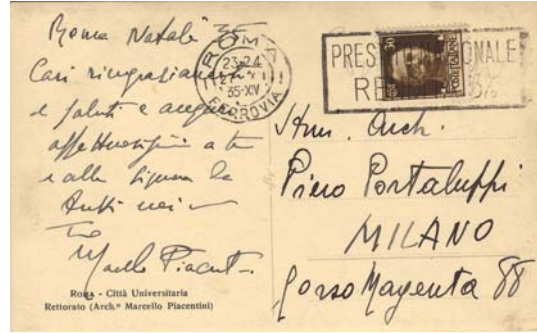 Roma Natale 35
Cari ringraziamenti
e saluti e auguri
affettuosissimi a te
e alla Signora da
tutti noi
Tuo
Marcello Piacent
Roma - Città Universitaria
Rettorato (Arch.º Marcello Piacentini)
ROMA
23-24
35-XIV
FERROVIA
PREST NAZIONALE
RE
50
POSTE ITALIANE
Arch.
Piero Portaluppi
MILANO
Corso Magenta 88